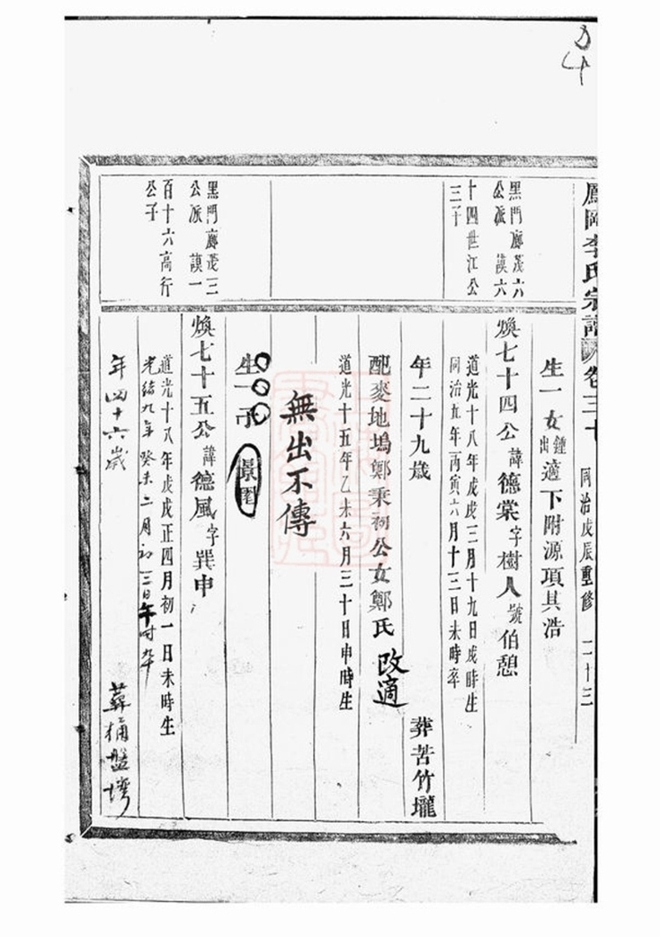 鳳岡李氏宗譜 卷三十 同治戊辰重修 二十三
黑門廊茂六
公派 謨六
十四世江公
三子
黑門廊茂三
公派 謨一
百十六高行
公子
生一女 鍾出 適下附源項其浩
煥七十四公 諱德棠 字樹人 號伯憩
道光十八年戊戌三月十九日戌時生
同治五年丙寅六月十三日未時卒
年二十九歲 葬苦竹壠
配麥地塢鄭秉祠公女鄭氏 改適
道光十五年乙未六月三十日申時生
無出不傳
生一子
煥七十五公 諱德風 字巽申
道光十八年戊戌正四月初一日未時生
光緒九年癸未二月初三日午時卒
年四十六歲 葬桶盤塆